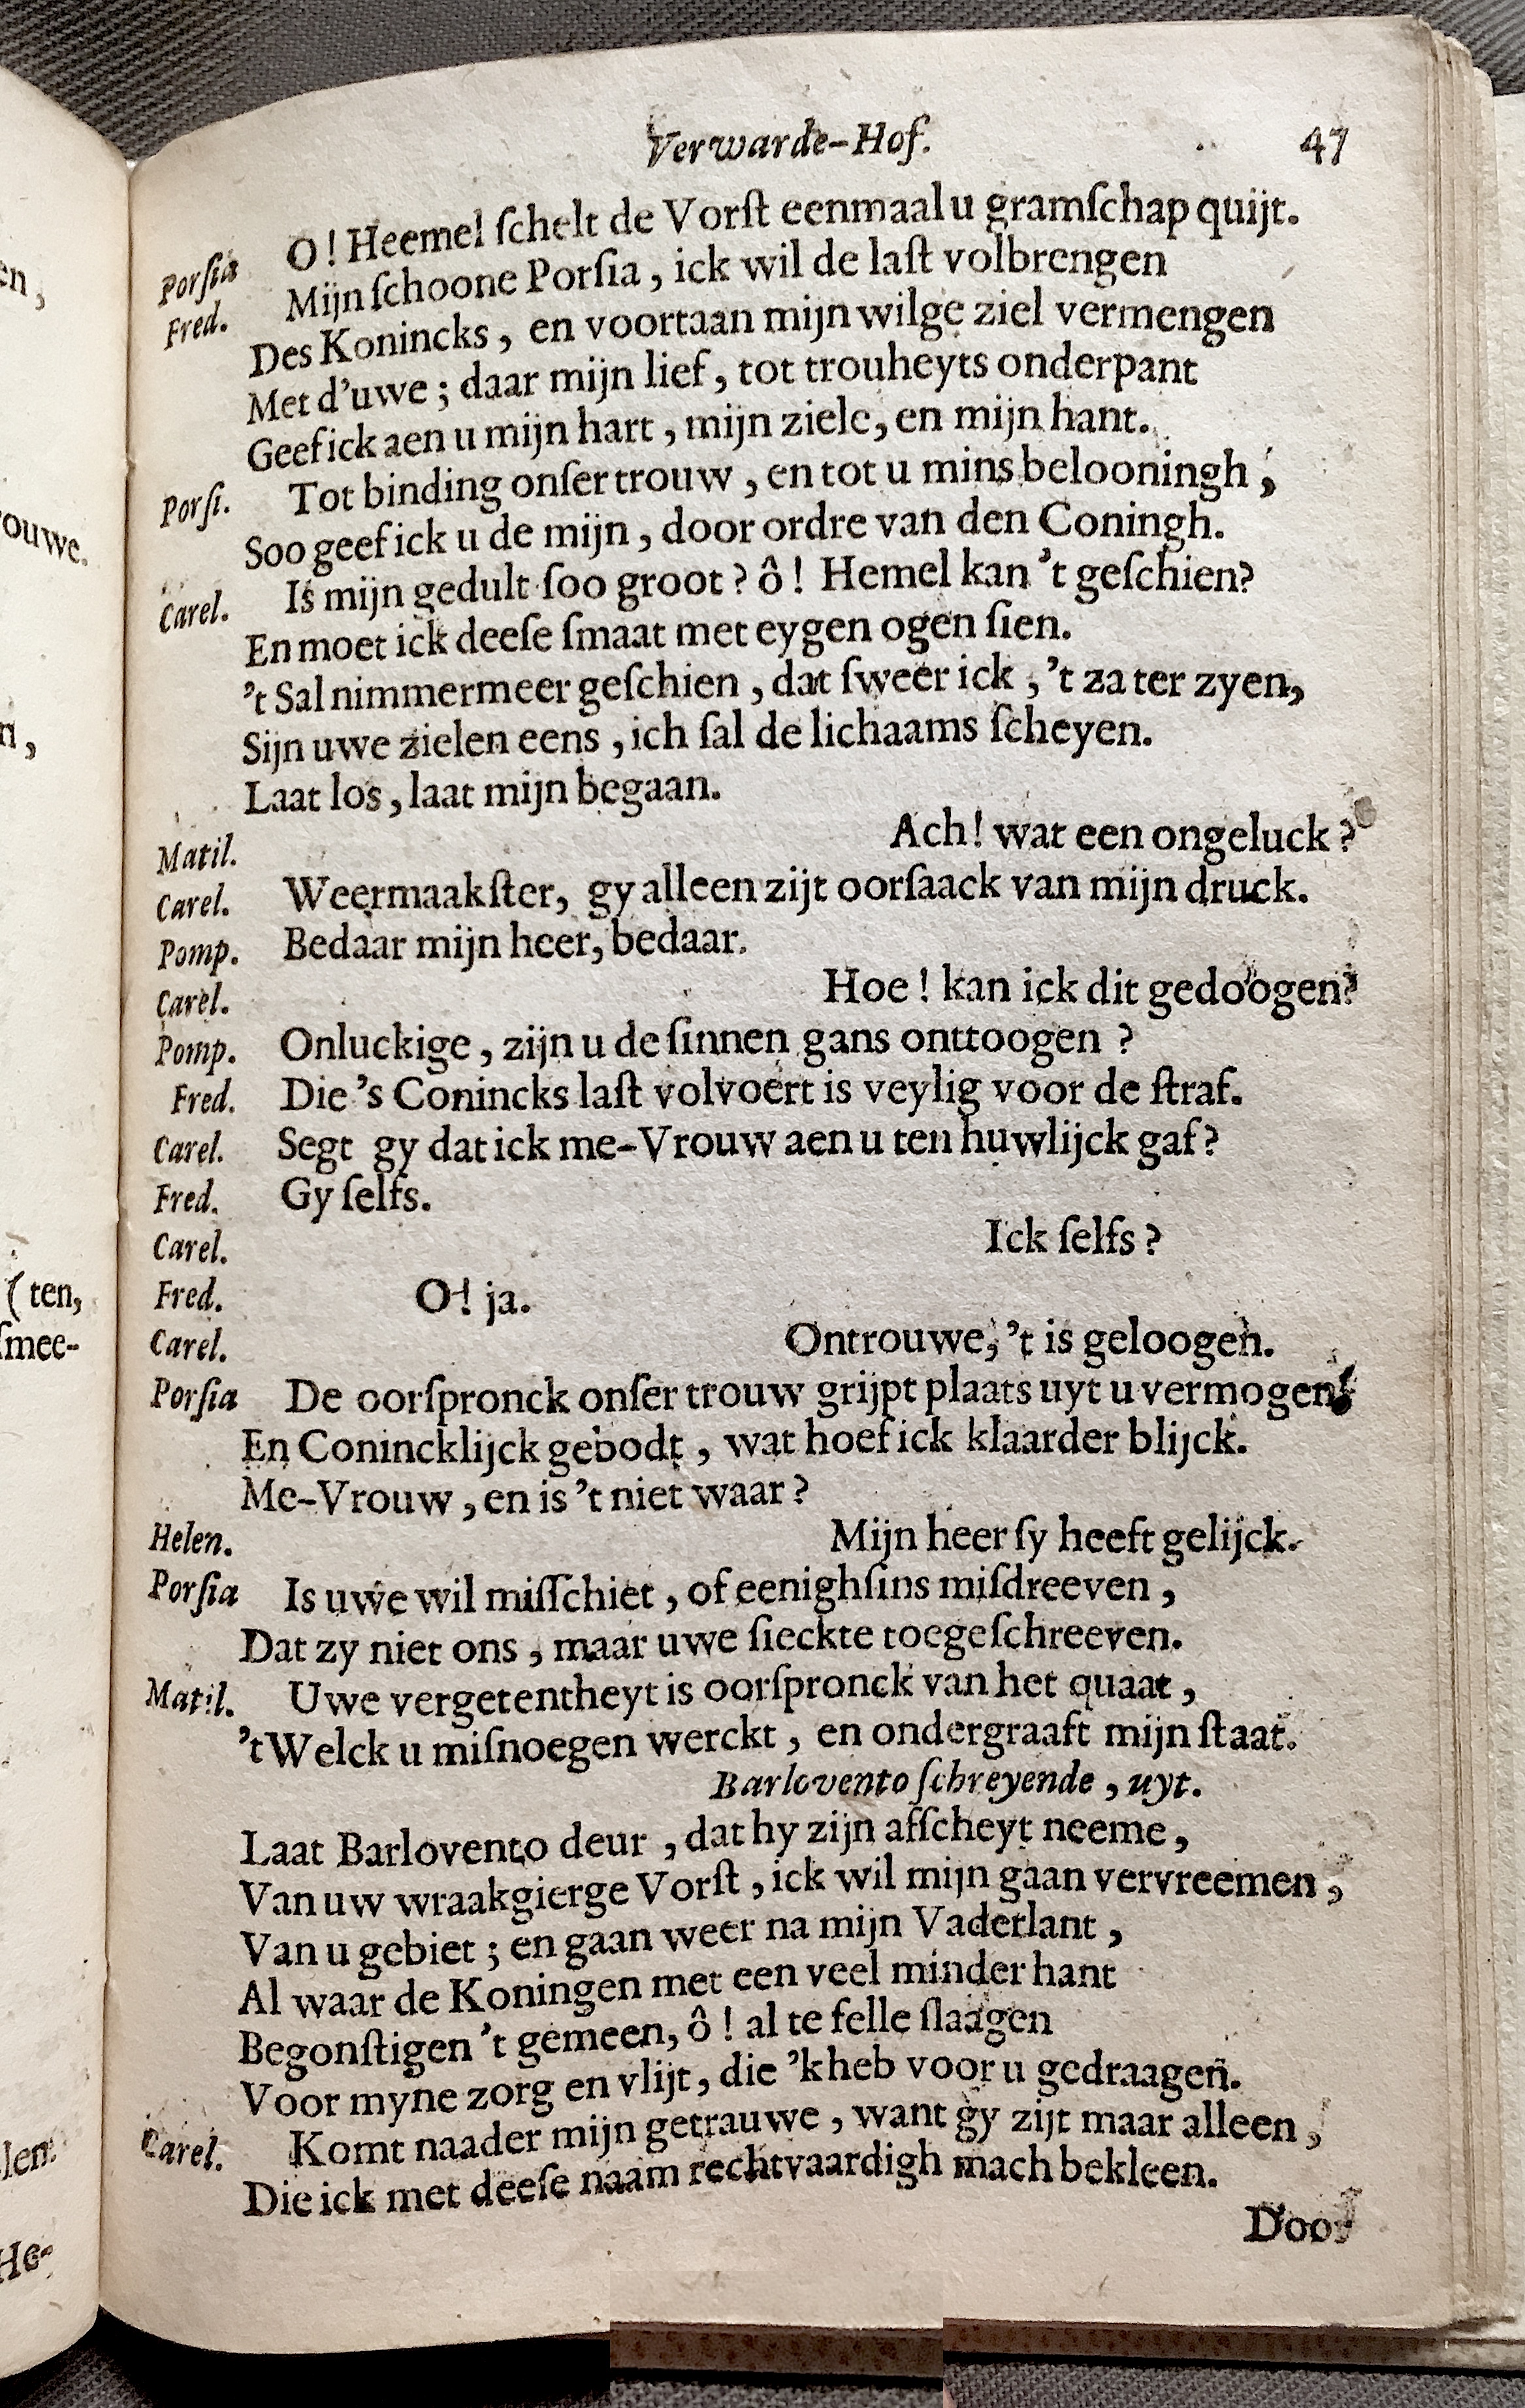 Verwarde-Hof. 47
Porſia O! Heemel ſchelt de Vorſt eenmaal u gramſchap quijt.
Fred. Mijn ſchoone Porſia, ick wil de laſt volbrengen
Des Konincks, en voortaan mijn wilge ziel vermengen
Met d'uwe; daar mijn lief, tot trouheyts onderpant
Geef ick aen u mijn hart, mijn ziele, en mijn hant.
Porſi. Tot binding onſer trouw, en tot u mins belooningh,
Soo geef ick u de mijn, door ordre van den Coningh.
Carel. Is mijn gedult ſoo groot? ô! Hemel kan 't geſchien?
En moet ick deeſe ſmaat met eygen ogen ſien.
't Sal nimmermeer geſchien, dat ſweer ick, 't za ter zyen,
Sijn uwe zielen eens, ich ſal de lichaams ſcheyen.
Laat los, laat mijn begaan.
Matil. Ach! wat een ongeluck?
Carel. Weermaakſter, gy alleen zijt oorſaack van mijn druck.
Pomp. Bedaar mijn heer, bedaar.
Carel. Hoe! kan ick dit gedoogen?
Pomp. Onluckige, zijn u de ſinnen gans onttoogen?
Fred. Die 's Conincks laſt volvoert is veylig voor de ſtraf.
Carel. Segt gy dat ick me-Vrouw aen u ten huwlijck gaf?
Fred. Gy ſelfs.
Carel. Ick ſelfs?
Fred. O! ja.
Carel. Ontrouwe, 't is geloogen.
Porſia De oorſpronck onſer trouw grijpt plaats uyt u vermogen,
En Conincklijck gebodt, wat hoef ick klaarder blijck.
Me-Vrouw, en is 't niet waar?
Helen. Mijn heer ſy heeft gelijck.
Porſia Is uwe wil miſſchiet, of eenighſins miſdreeven,
Dat zy niet ons, maar uwe ſieckte toegeſchreeven.
Matil. Uwe vergetentheyt is oorſpronck van het quaat,
't Welck u miſnoegen werckt, en ondergraaft mijn ſtaat.
Barlovento ſchreyende, uyt.
Laat Barlovento deur, dat hy zijn afſcheyt neeme,
Van uw wraakgierge Vorſt, ick wil mijn gaan vervreemen,
Van u gebiet; en gaan weer na mijn Vaderlant,
Al waar de Koningen met een veel minder hant
Begonſtigen 't gemeen, ô! al te felle ſlaagen
Voor myne zorg en vlijt, die 'k heb voor u gedraagen.
Carel. Komt naader mijn getrauwe, want gy zijt maar alleen,
Die ick met deeſe naam rechtvaardigh mach bekleen.
Door
en,
ouwe.
n,
(ten,
ſmee-
len.
He-